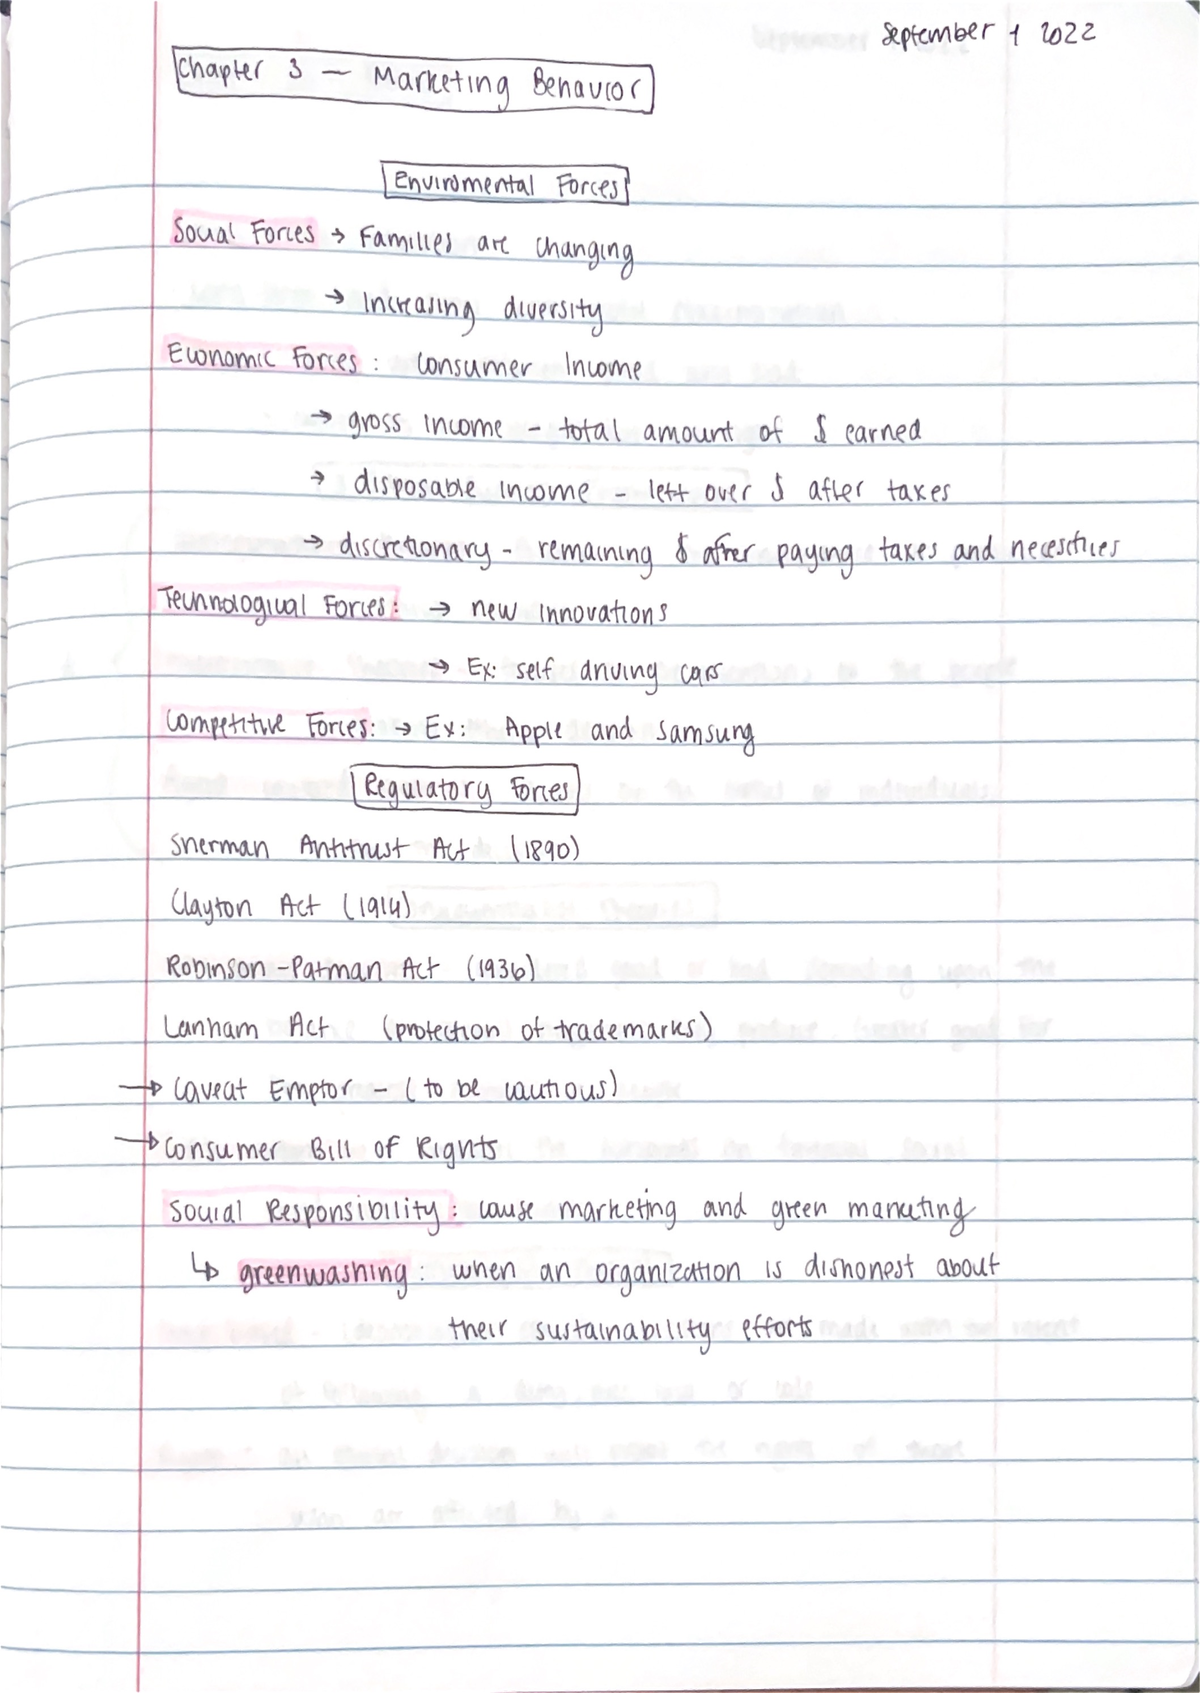 September 1 2022
Chapter 3 — Marketing Behavior
Enviromental Forces
Social Forces → Families are changing
→ Increasing diversity
Economic Forces: Consumer Income
→ gross income - total amount of $ earned
→ disposable income - left over $ after taxes
→ discretionary - remaining $ after paying taxes and necesities
Technological Forces: → new innovations
→ Ex: self driving cars
Competitive Forces: → Ex: Apple and Samsung
Regulatory Forces
Sherman Antitrust Act (1890)
Clayton Act (1914)
Robinson-Patman Act (1936)
Lanham Act (protection of trademarks)
→ Caveat Emptor - (to be cautious)
→ Consumer Bill of Rights
Social Responsibility: cause marketing and green marketing
↳ greenwashing: when an organization is dishonest about
their sustainability efforts